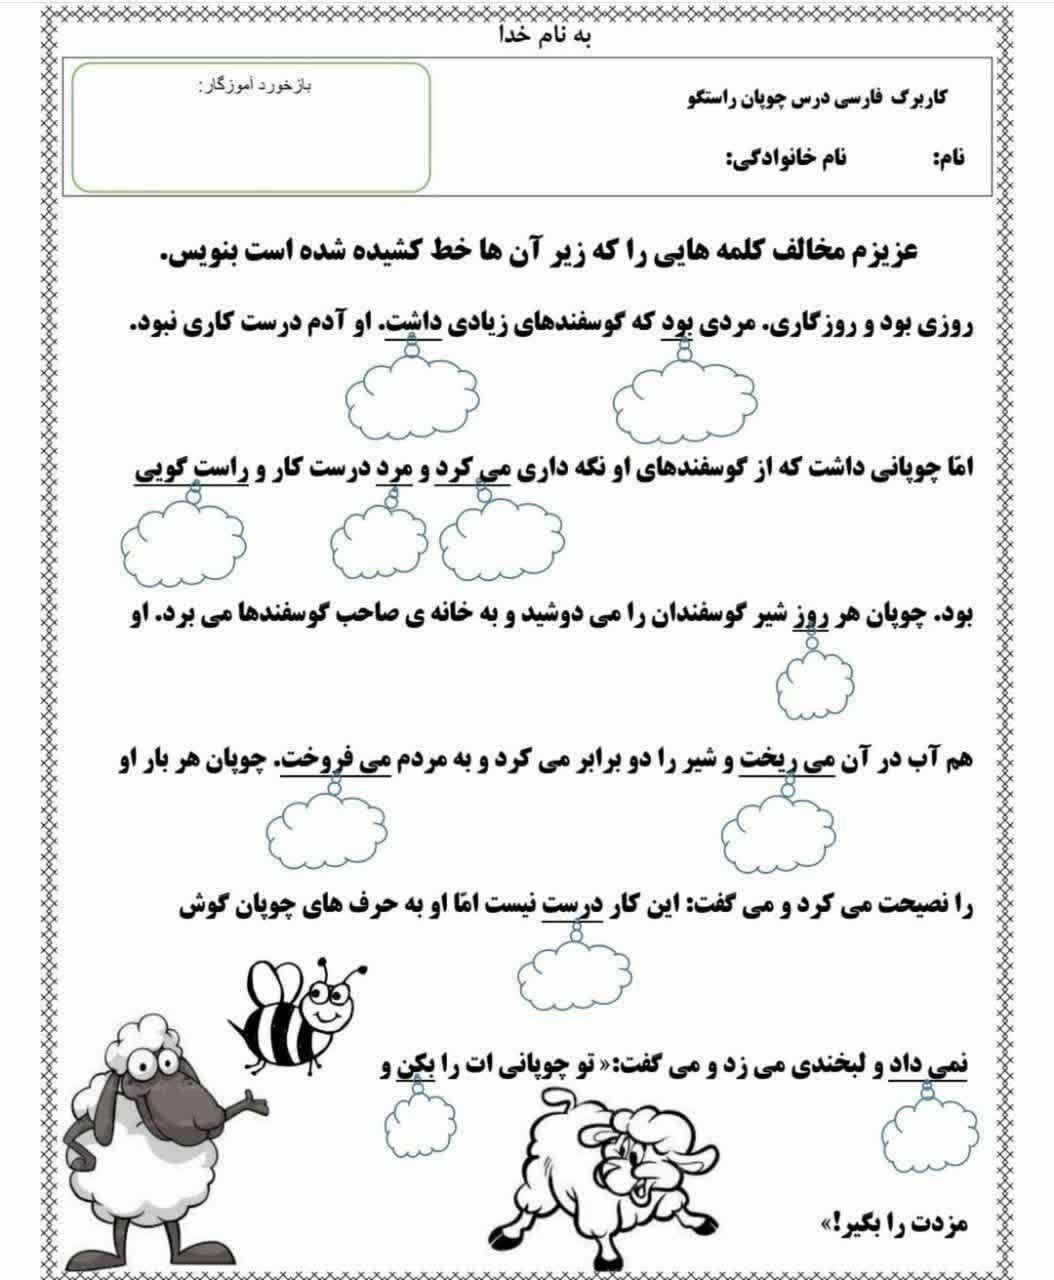 به نام خدا
کاربرگ فارسی درس چوپان راستگو
بازخورد آموزگار:
نام: نام خانوادگی:
عزیزم مخالف کلمه هایی را که زیر آن ها خط کشیده شده است بنویس.
روزی بود و روزگاری. مردی بود که گوسفندهای زیادی داشت. او آدم درست کاری نبود.
امّا چوپانی داشت که از گوسفندهای او نگه داری می کرد و مرد درست کار و راست گویی
بود. چوپان هر روز شیر گوسفندان را می دوشید و به خانه ی صاحب گوسفندها می برد. او
هم آب در آن می ریخت و شیر را دو برابر می کرد و به مردم می فروخت. چوپان هر بار او
را نصیحت می کرد و می گفت: این کار درست نیست امّا او به حرف های چوپان گوش
نمی داد و لبخندی می زد و می گفت:« تو چوپانی ات را بکن و
مزدت را بگیر!»